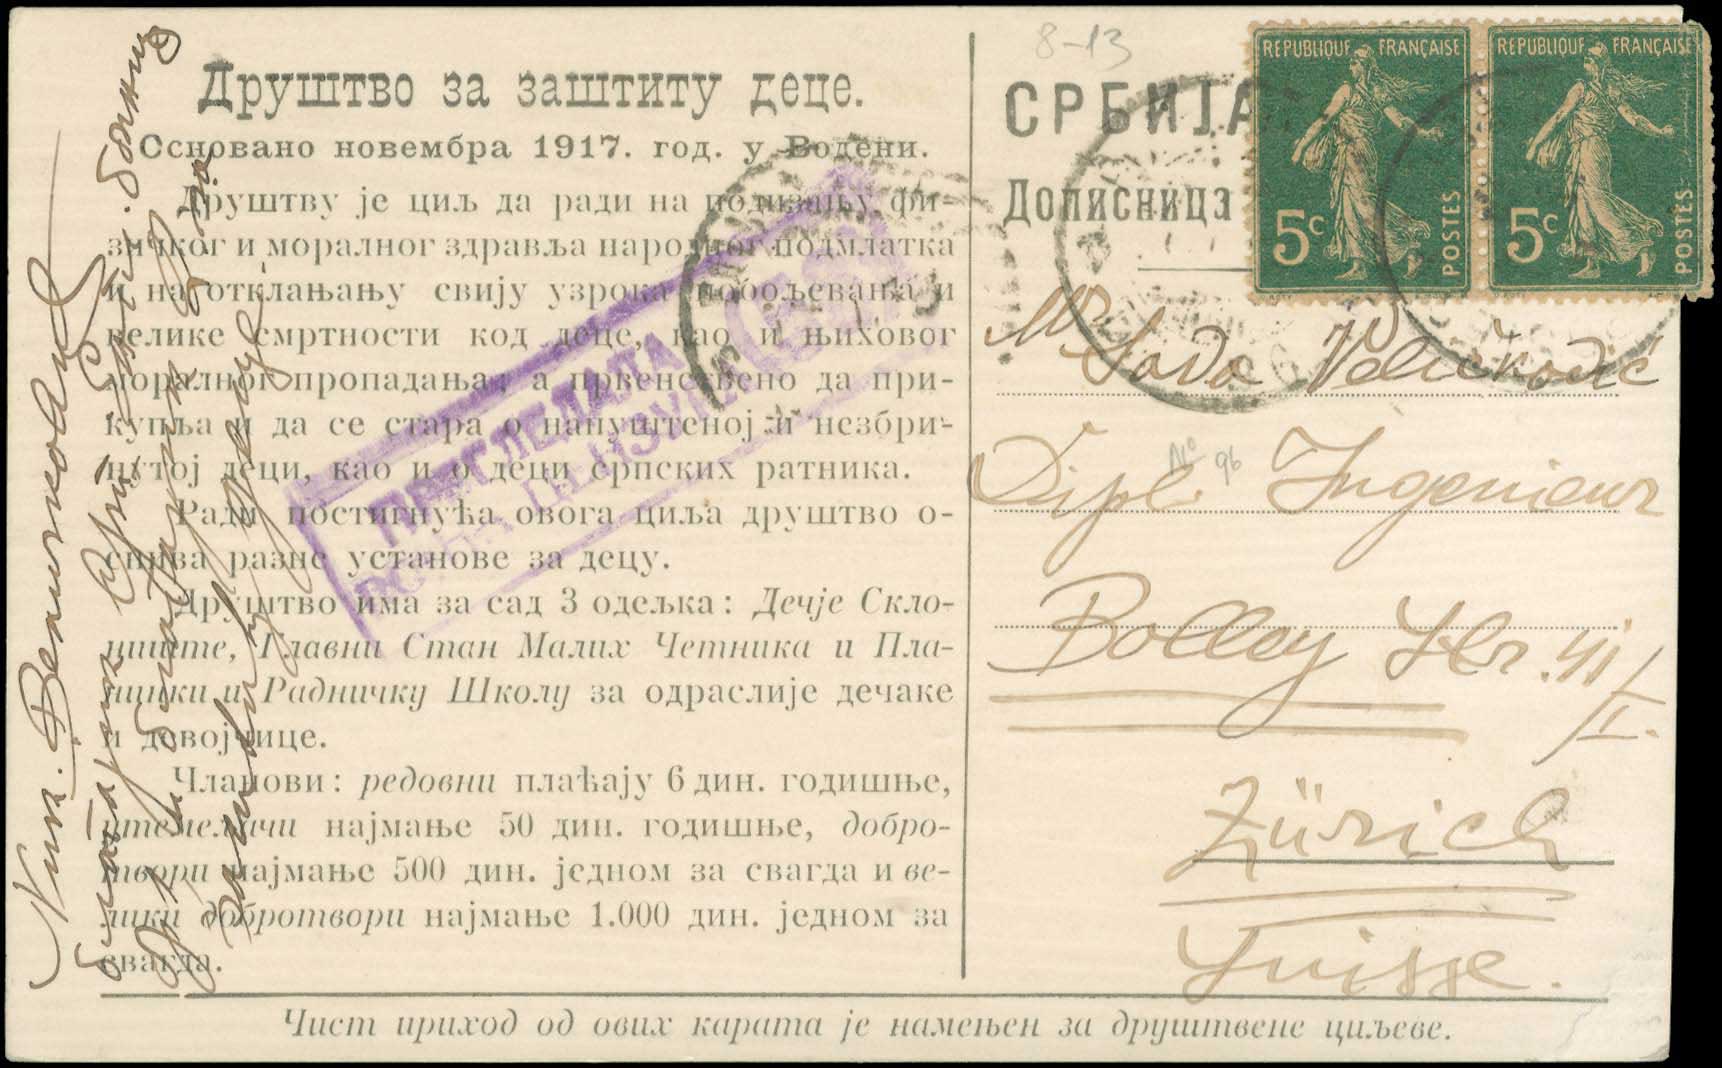 Друштво за заштиту деце.
Основано новембра 1917. год. у Водени.
Друштву је циљ да ради на подизању фи-
зичког и моралног здравља народног подмлатка
и на отклањању свију узрока побољевања и
велике смртности код деце, као и њиховог
моралног пропадања; а првенствено да при-
купља и да се стара о напуштеној и незбри-
нутој деци, као и о деци српских ратника.
Ради постигнућа овога циља друштво о-
снива разне установе за децу.
Друштво има за сад 3 одељка: Дечје Скло-
ниште, Главни Стан Малих Четника и Пла-
нинки и Радничку Школу за одраслије дечаке
и девојчице.
Чланови: редовни плаћају 6 дин. годишње,
утемељачи најмање 50 дин. годишње, добро-
твори најмање 500 дин. једном за свагда и ве-
лики добротвори најмање 1.000 дин. једном за
свагда.
Чист приход од ових карата је намењен за друштвене циљеве.
ПРЕГЛЕДАЛА
ВОЈНА ЦЕНЗУРА
8-13
СРБИЈА
Дописница
REPUBLIQUE FRANÇAISE
5c
POSTES
REPUBLIQUE FRANÇAISE
5c
POSTES
Mr Sava Veličković
Nº 96
Dipl. Ingenieur
Bolley Str. 41/I.
Zürich
Suisse.